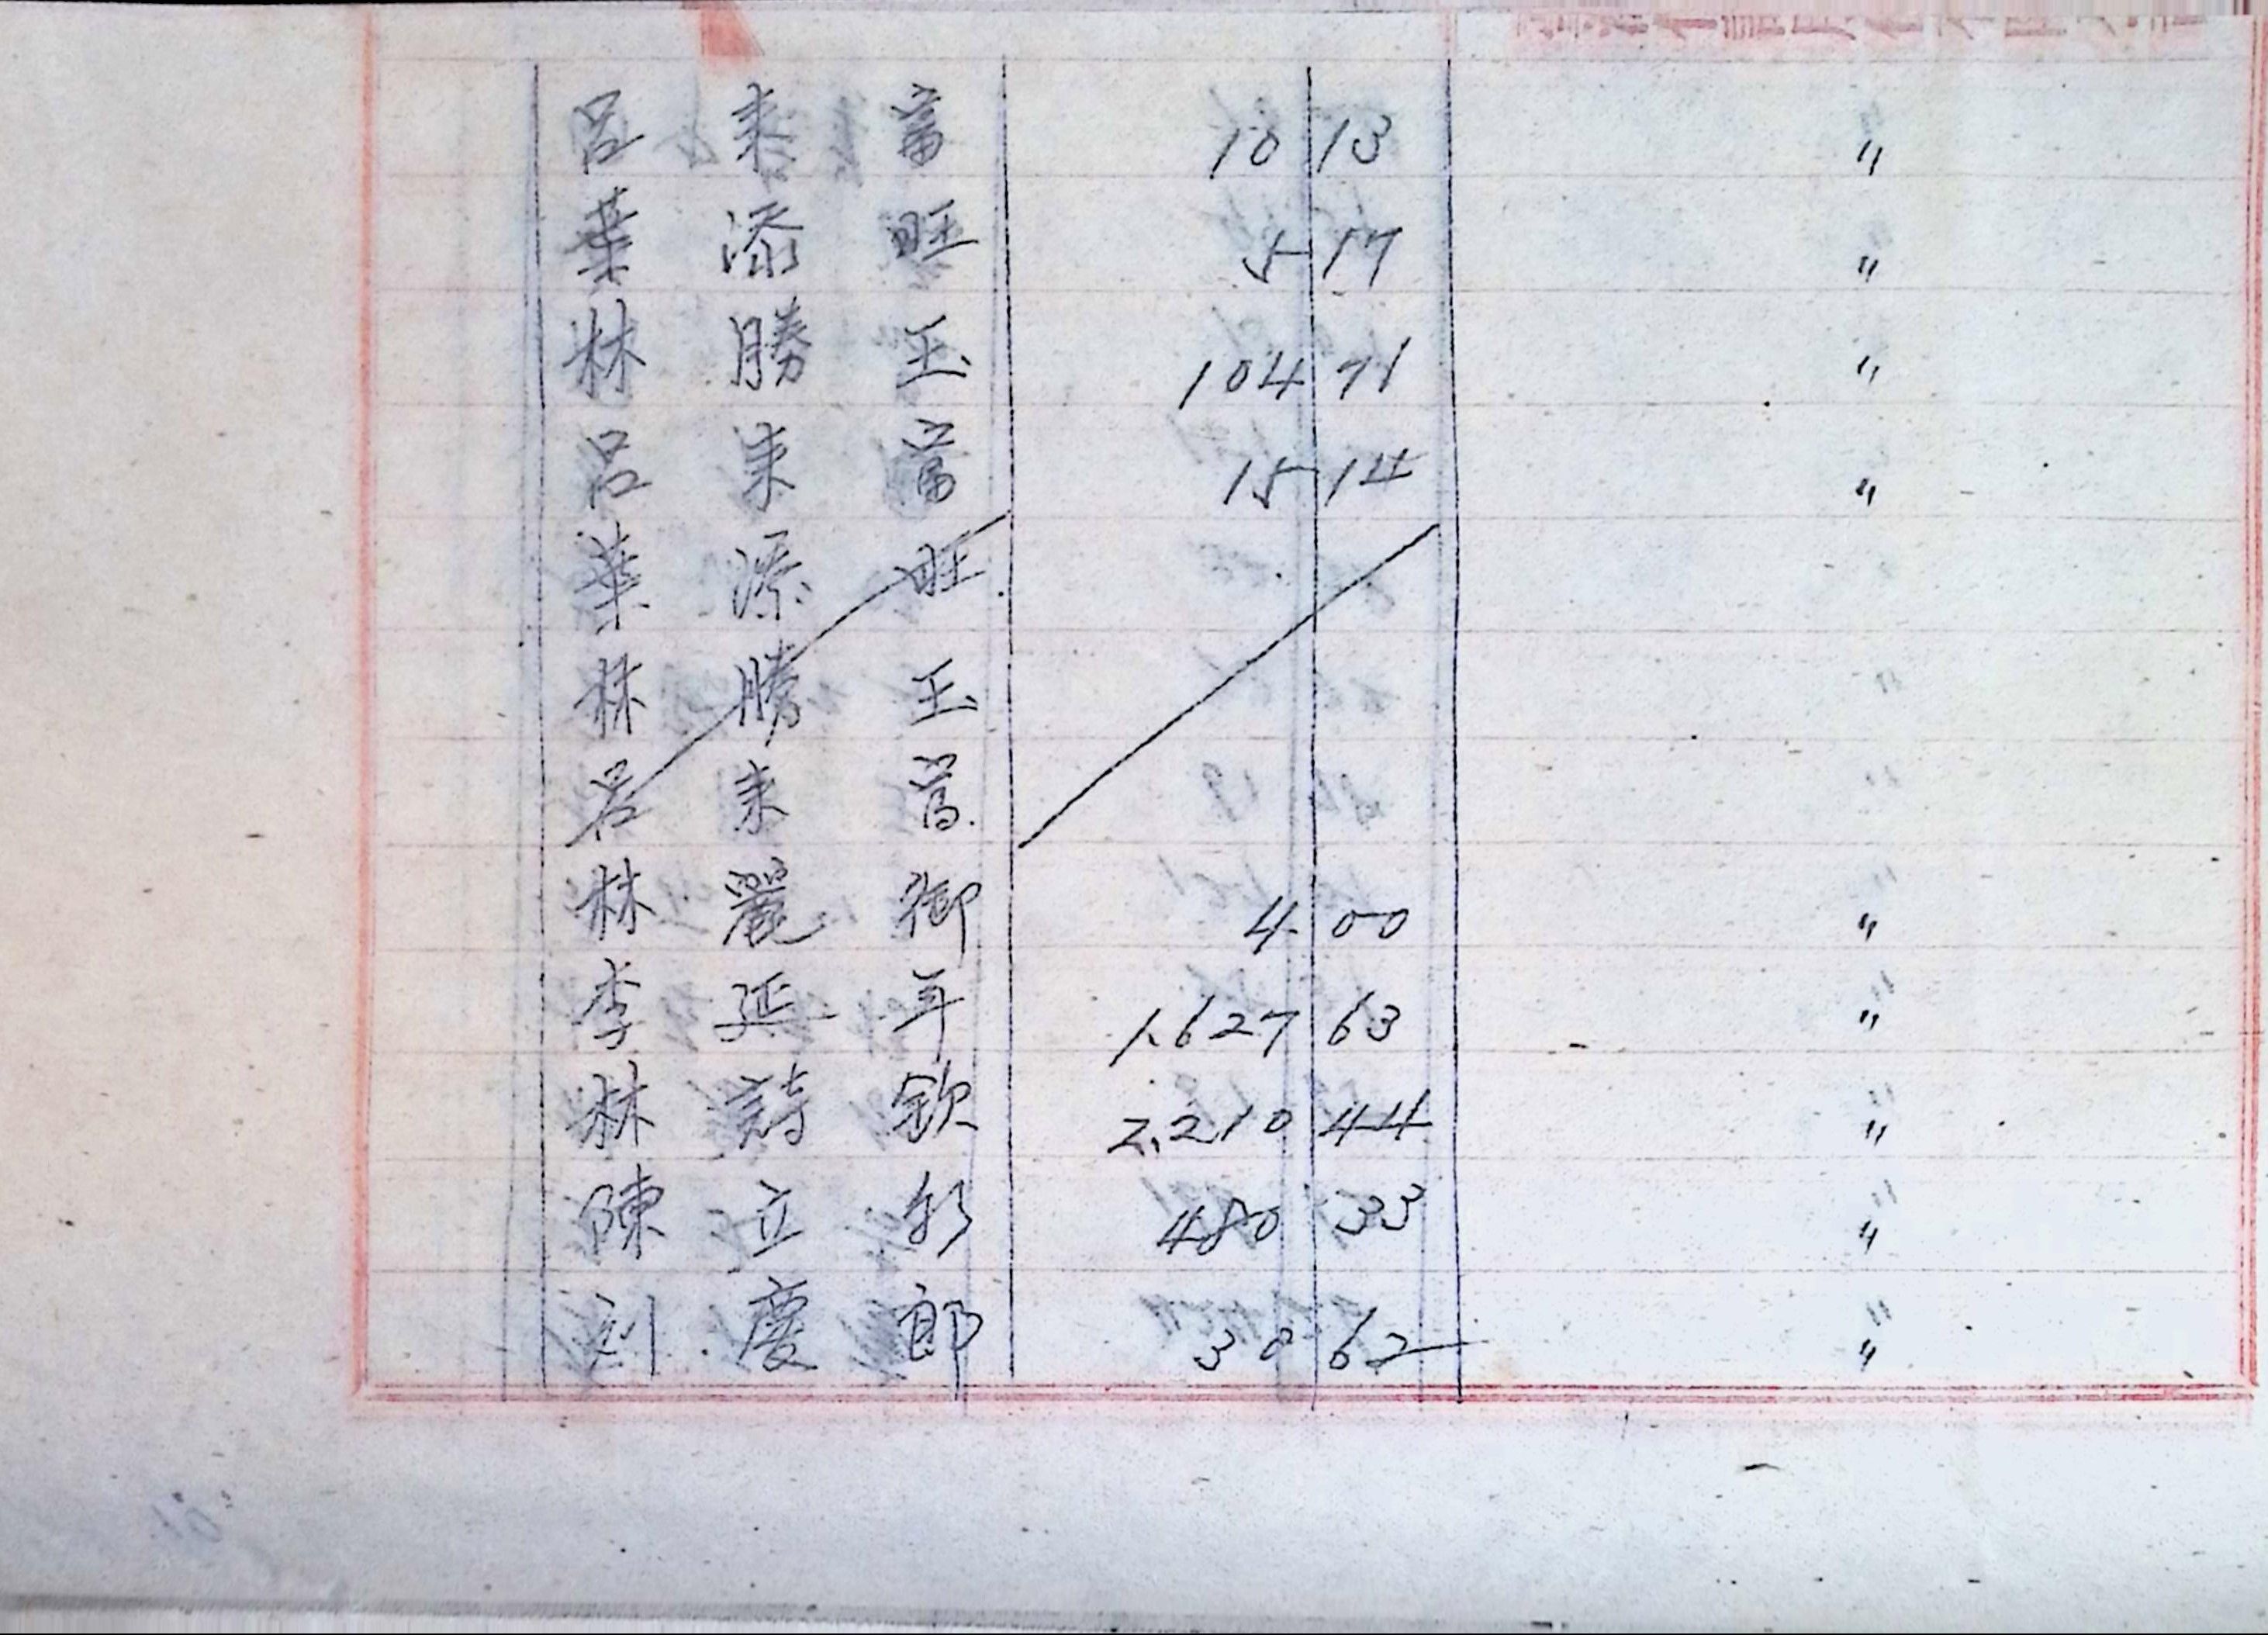 呂來富 10 13 〃
葉添旺 5 17 〃
林勝玉 104 71 〃
呂來富 15 14 〃
葉添旺
林勝玉
呂來富
林麗卿 4 00 〃
李延年 1,627 63 〃
林詩欽 2,210 44 〃
陳立 480 33 〃
刘慶郎 30 62 〃